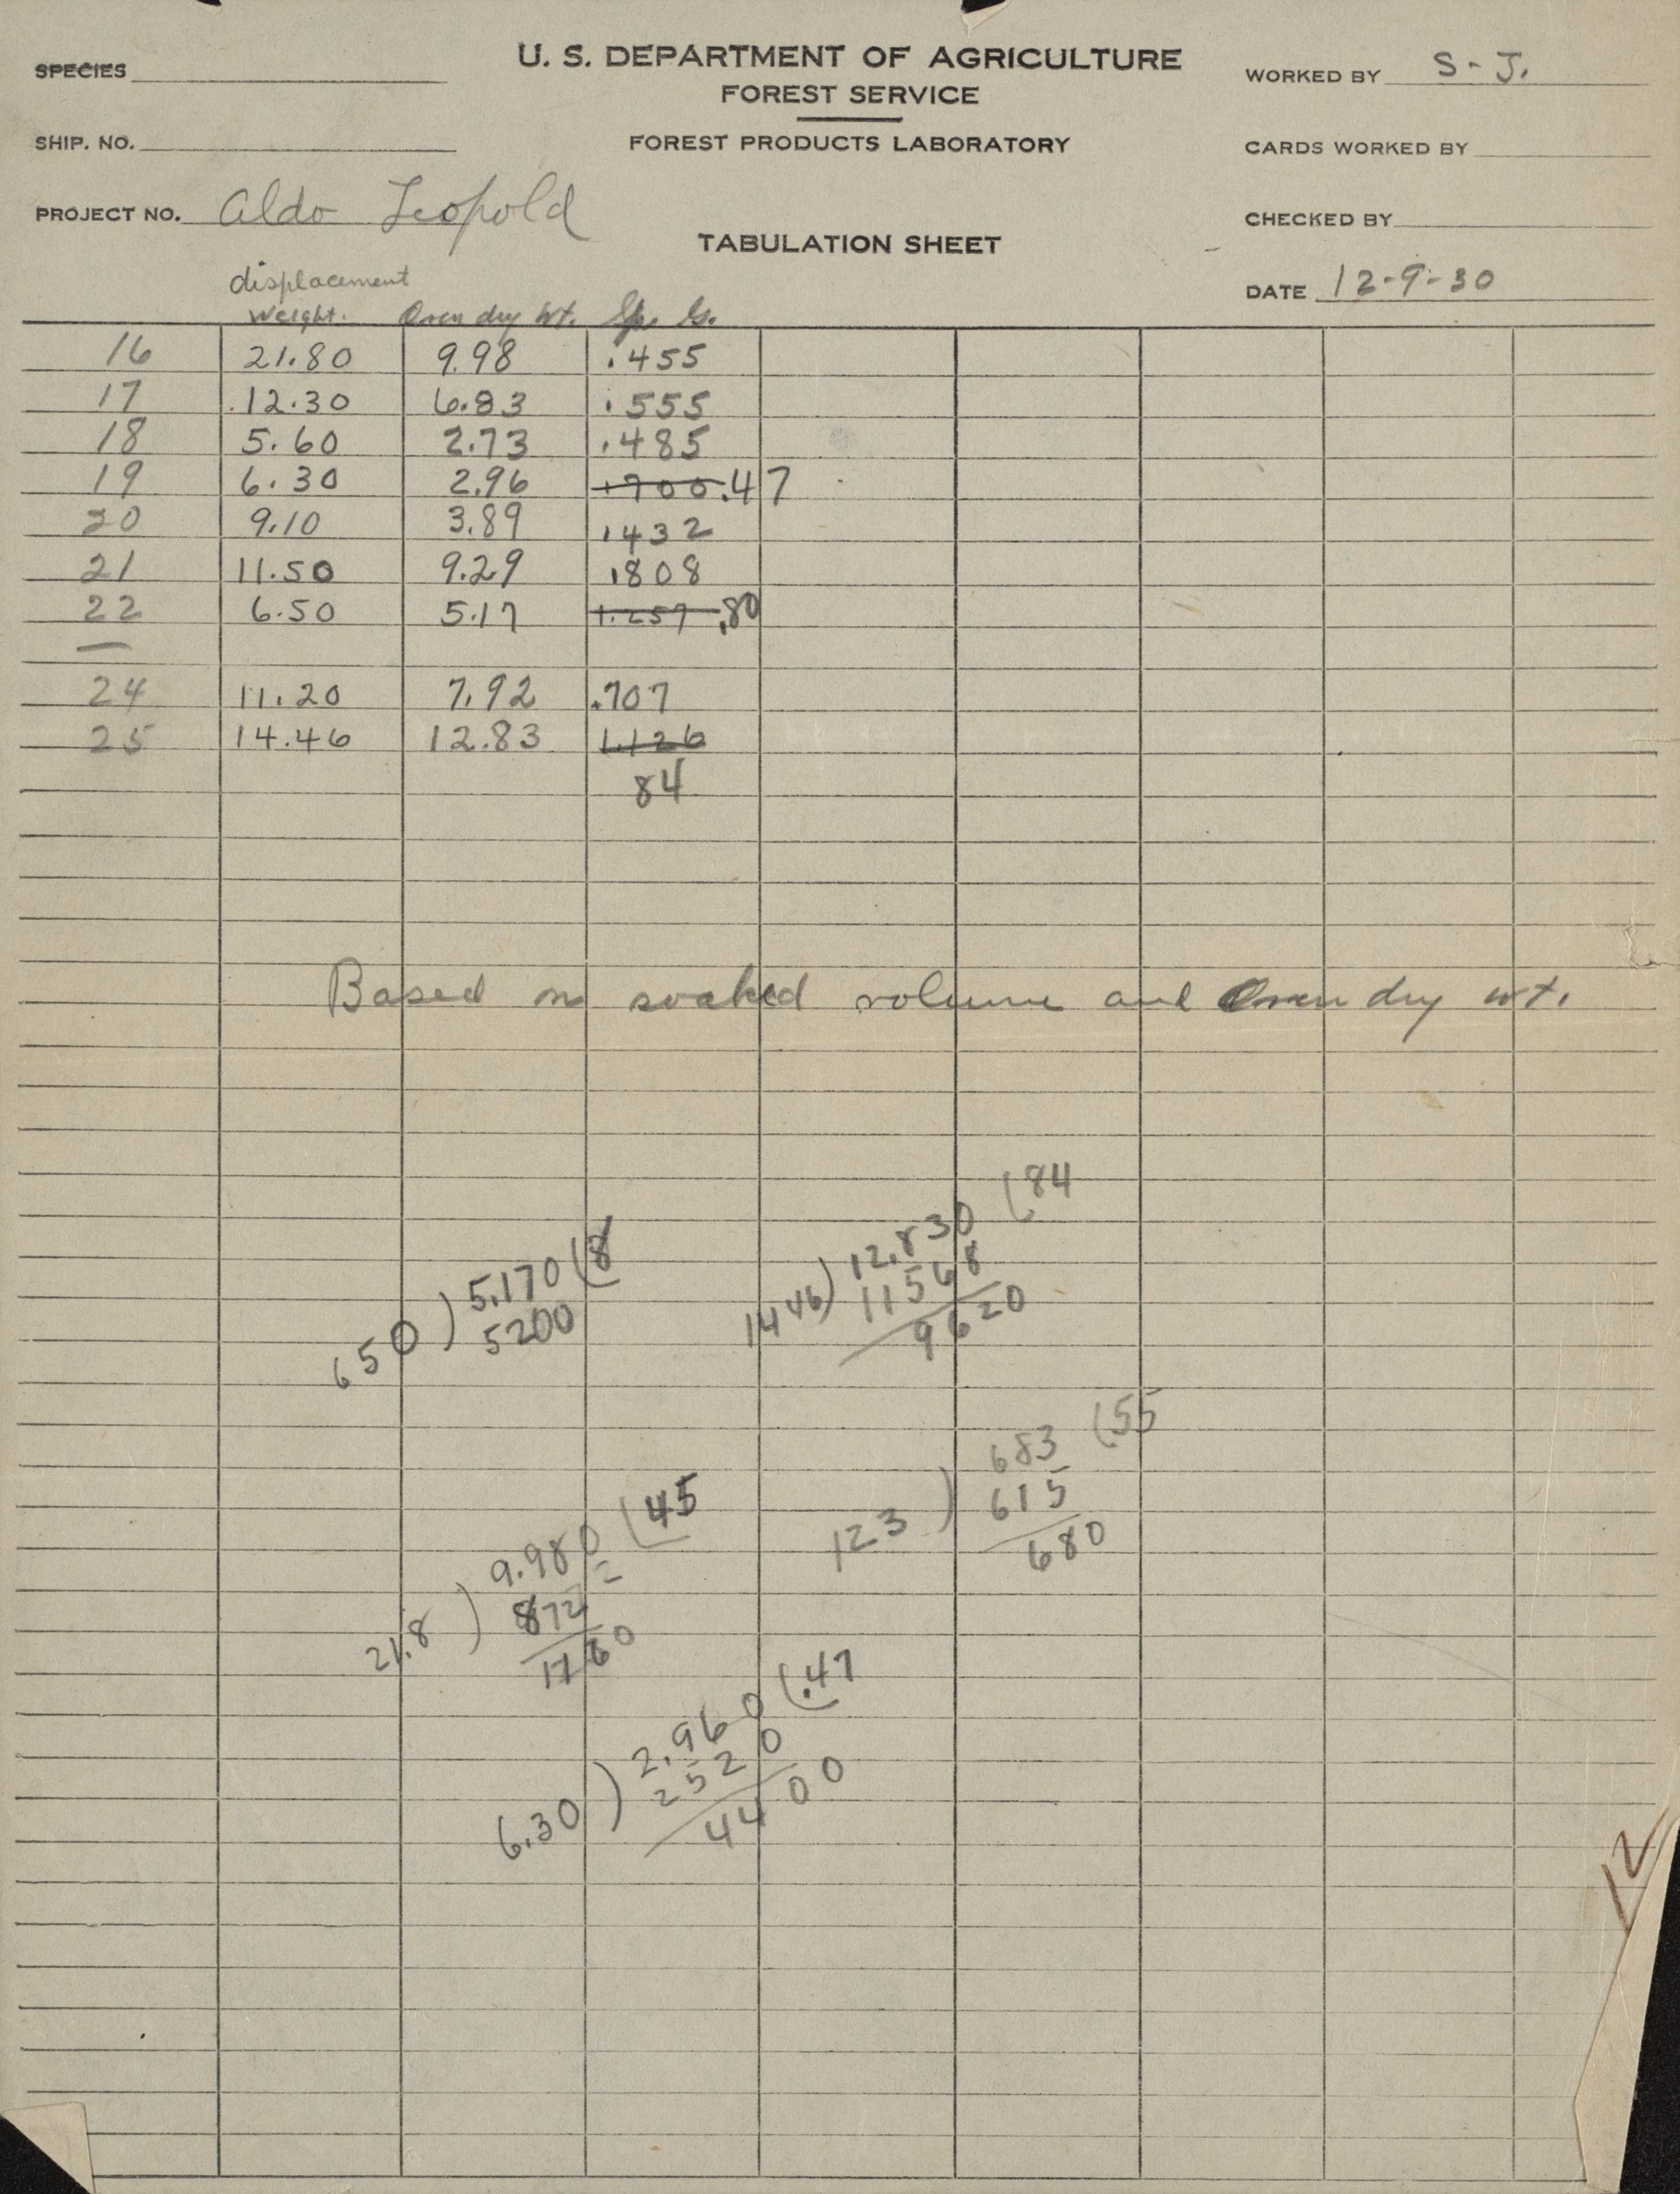 U. S. DEPARTMENT OF AGRICULTURE
FOREST SERVICE
FOREST PRODUCTS LABORATORY
TABULATION SHEET
SPECIES
SHIP. NO.
PROJECT NO. Aldo Leopold
WORKED BY S-J.
CARDS WORKED BY
CHECKED BY
DATE 12-9-30
displacement
Weight. Oven dry Wt. Sp. G.
16 21.80 9.98 .455
17 12.30 6.83 .555
18 5.60 2.73 .485
19 6.30 2.96 .700 .47
20 9.10 3.89 .432
21 11.50 9.29 .808
22 6.50 5.17 1.257 .80
—
24 11.20 7.92 .707
25 14.46 12.83 1.126
84
Based on soaked volume and Oven dry wt.
650 ) 5.170 ( 8
5200
1446 ) 12.830 ( 84
11568
9620
123 ) 683 ( 55
615
680
21.8 ) 9.980 ( 45
872
1260
6.30 ) 2.960 ( .47
2520
4400
12